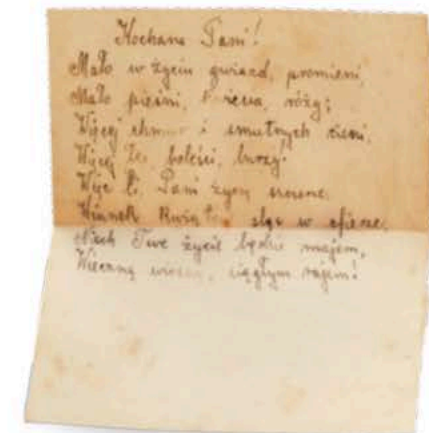 Kochana Pani!
Mało w życiu gwiazd, promieni,
Mało pieśni, róży;
Więcej chmur i smutnych cieni,
Więcej łez, boleści, burzy!
Więc Ci, Pani życzę szczerze,
Wianek kwiatów w ofierze,
Niech Twe życie będzie majem,
Wieczną wiosną, ciągłym rajem!